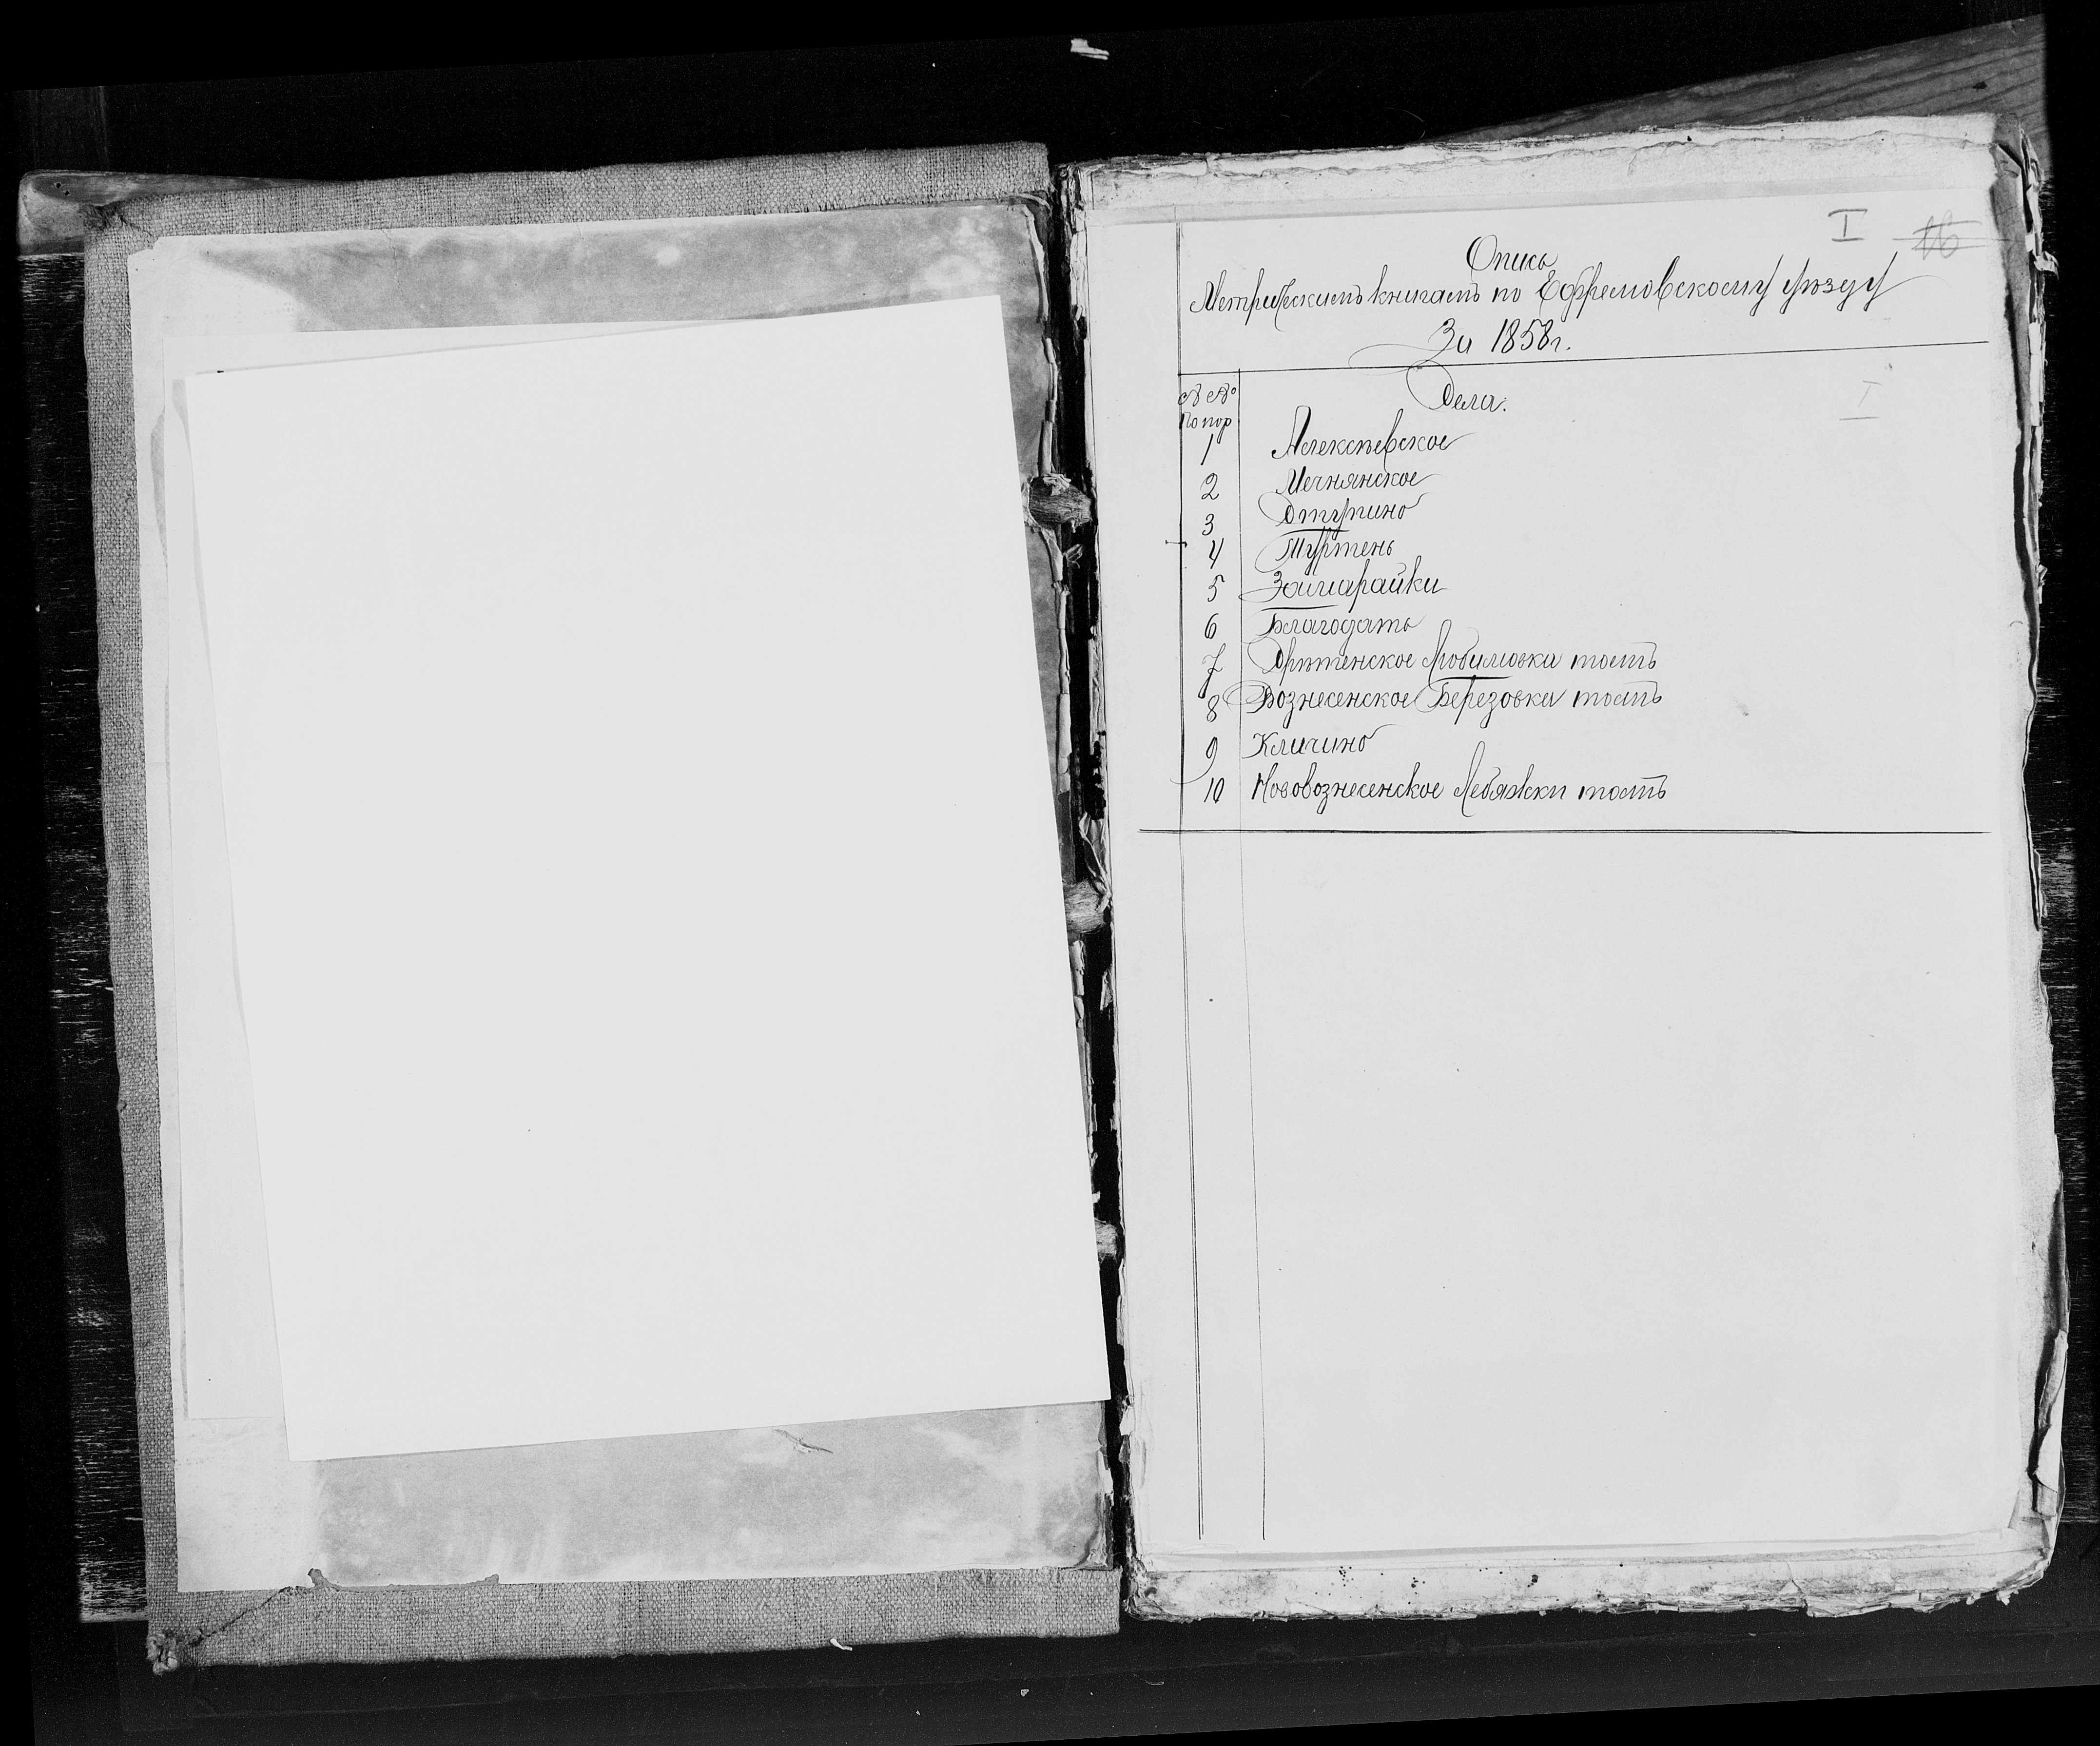 I 16
Опись
Метрическимъ книгамъ по Ефремовскому уѣзду
За 1858 г.
№№ По пор
Села.
I
1 Алексѣевское
2 Мечнянское
3
4 Туртень
5 Замарайки
6 Благодать
7 Любимовка тожъ
8 Вознесенское Березовка тожъ
9 Кличино
10 Нововознесенское Лебяжки тожъ